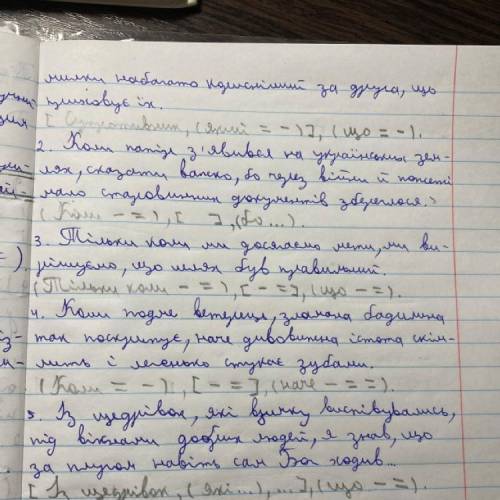 милки набагато корисніший за друга, що
приховує їх.
[Супротивник, (який = –)], (що = –).
2. Коли папір з'явився на українських зем-
лях, сказати важко, бо через війни й пожежі
мало стародавніх документів збереглося.
(Коли – =), [ ], (бо...).
3. Тільки коли ми досягаємо мети, ми ви-
рішуємо, що шлях був правильний.
(Тільки коли – =), [– =], (що – =).
4. Коли подме вітерець, зламана бадилина
так поскрипує, наче дивовижна істота скім-
лить і легенько стукає зубами.
(Коли = –), [– =], (наче – = =).
5. Із щедрівок, які взимку виспівувались
під вікнами добрих людей, я знав, що
за плугом навіть сам Бог ходив...
[Із щедрівок, (які...), ...], (що – =).